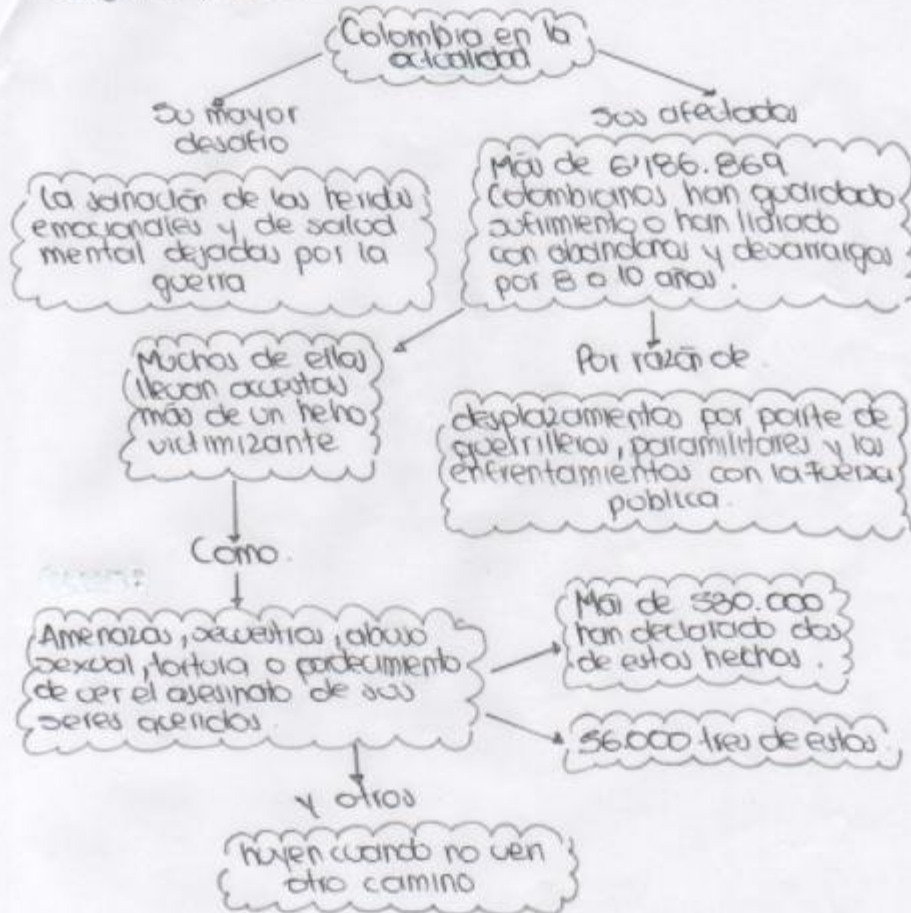 Colombia en la
actualidad
Su mayor
desafío
sus afectados
La sanación de las heridas
emocionales y de salud
mental dejadas por la
guerra
Más de 6'186.869
Colombianos han guardado
sufrimiento o han lidiado
con abandonos y desarraigos
por 8 o 10 años.
Muchos de ellos
llevan acuestas
más de un heho
victimizante
Por razón de
desplazamientos por parte de
guerrilleros, paramilitares y los
enfrentamientos con la fuerza
pública.
Como.
Amenazas, secuestros, abuso
sexual, tortura o padecimiento
de ver el asesinato de sus
seres queridos
Más de 330.000
han declarado dos
de estos hechos.
56.000 tres de estos.
y otros
huyen cuando no ven
otro camino